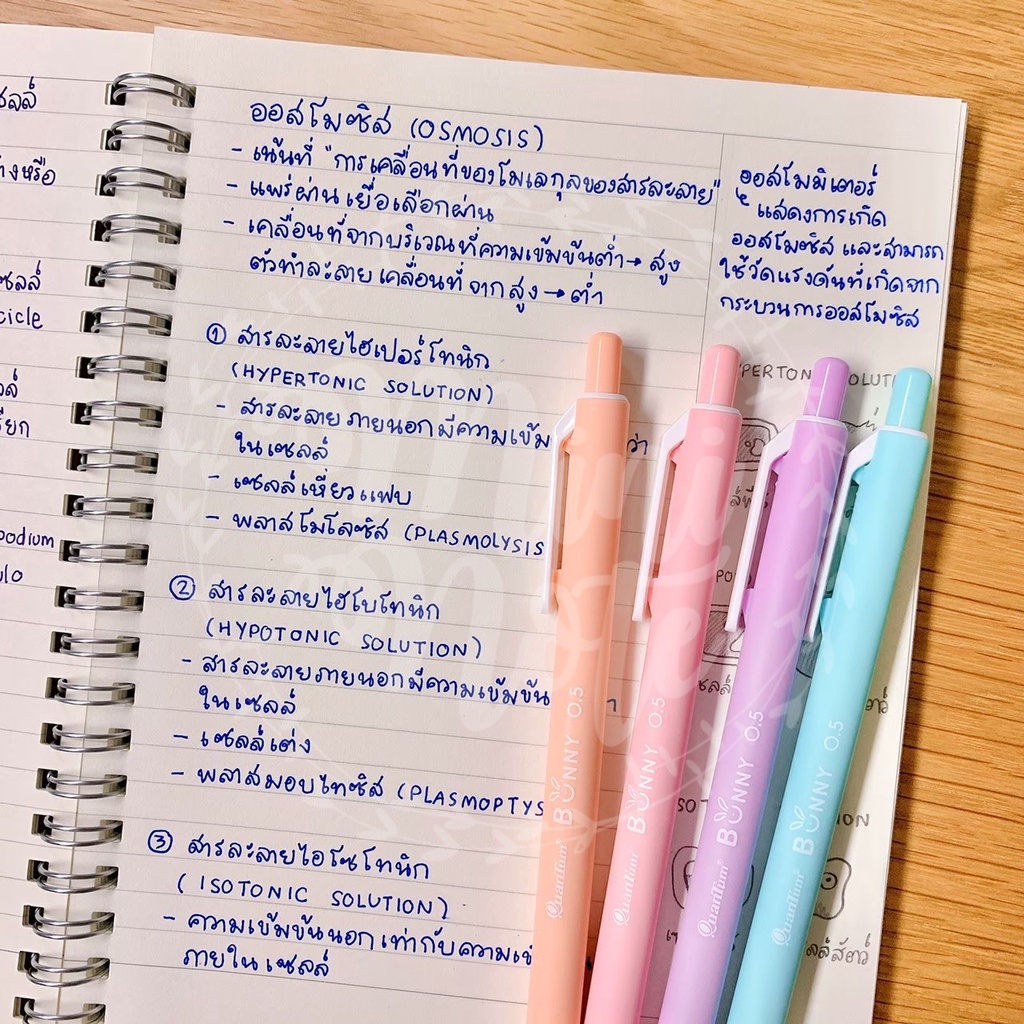 ออสโมซิส (OSMOSIS)
- เน้นที่ "การเคลื่อนที่ของโมเลกุลของสารละลาย"
- แพร่ผ่านเยื่อเลือกผ่าน
- เคลื่อนที่จากบริเวณที่ความเข้มข้นต่ำ → สูง
ตัวทำละลายเคลื่อนที่จากสูง → ต่ำ
① สารละลายไฮเปอร์โทนิก
(HYPERTONIC SOLUTION)
- สารละลายภายนอกมีความเข้ม
ว่า
ในเซลล์
- เซลล์เหี่ยวแฟบ
- พลาสโมไลซิส (PLASMOLYSIS
② สารละลายไฮโบโทนิก
(HYPOTONIC SOLUTION)
- สารละลายภายนอกมีความเข้มข้น
ในเซลล์
- เซลล์เต่ง
- พลาสมอบไทซิส (PLASMOPTYS
③ สารละลายไอโซโทนิก
(ISOTONIC SOLUTION)
- ความเข้มข้นนอกเท่ากับความเข้
ภายในเซลล์
ออสโมมิเตอร์
แสดงการเกิด
ออสโมซิส และสามารถ
ใช้วัดแรงดันที่เกิดจาก
กระบวนการออสโมซิส
PERTON SOLUTI
ION
ลล์สัตว์
ซลล์
างหรือ
ซลล์
cicle
รียก
oodium
ulo
Quantum BUNNY 0.5
Quantum BUNNY 0.5
Quantum BUNNY 0.5
Quantum BUNNY 0.5
mini
notes